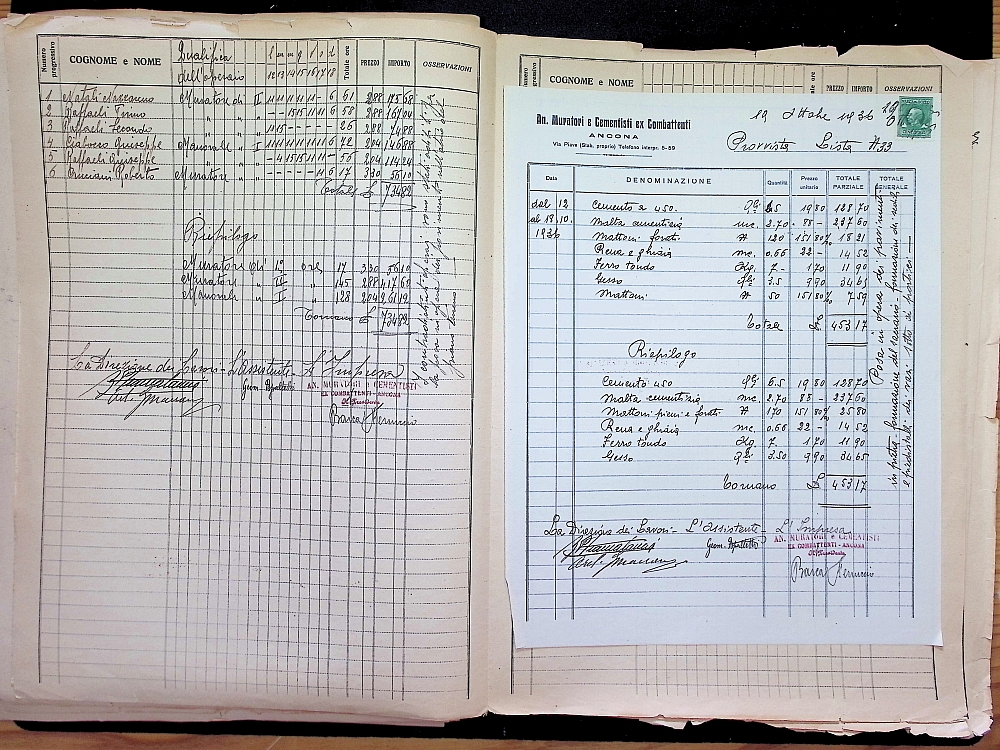 Numero progressivo COGNOME e NOME Qualifica dell'operaio l m m g f s d Totale ore PREZZO IMPORTO OSSERVAZIONI
12 13 14 15 16 17 18
1 Natali Nazzareno Muratore di II 11 11 11 11 11 - 6 61 2.88 175 68
2 Raffaeli Primo " " " - - 15 15 11 11 6 58 2.88 167 04
3 Raffaeli Secondo " " " 11 15 - - - - - 26 2.88 74 88
4 Giuseppe Manovale " I 11 11 11 11 11 11 6 72 2.04 146 88
5 Raffaeli Giuseppe " " " - 4 15 15 11 11 - 56 2.04 114 24
6 Roberto Muratore " - - - - - 11 6 17 3.30 56 10
Totale £ 734 82
Riepilogo
Muratore di I^a ore 17 3.30 56 10
Muratore " II " 145 2.88 417 60
Manovale " I " 128 2.04 261 12
Tornano £ 734 82
La Direzione dei Lavori - L'Assistente - L'Impresa
Geom.
AN. MURATORI e CEMENTISTI
EX COMBATTENTI - ANCONA
Il Presidente
Numero progressivo COGNOME e NOME ore PREZZO IMPORTO OSSERVAZIONI
An. Muratori e Cementisti ex Combattenti
ANCONA
Via Piave (Stab. proprio) Telefono interpr. 5-89
19 Ottobre 1936
Provvista Lista N.33
Data DENOMINAZIONE Quantità Prezzo unitario TOTALE PARZIALE TOTALE GENERALE
dal 12 Cemento a 450. Qli 6.5 19 80 128 70
al 18.10. Malta cementizia mc. 2.70 88 - 237 60
1936 Mattoni forati N 120 151 80 % 18 21
Rena e ghiaia mc. 0.66 22 - 14 52
Ferro tondo Kg. 7 - 1 70 11 90
Gesso Qli 3.5 9 90 34 65
Mattoni N 50 151 80 % 7 59
Totale £ 453 17
Riepilogo
Cemento 450 Qli 6.5 19 80 128 70
Malta cementizia mc. 2.70 88 - 237 60
Mattoni pieni e forati N 170 151 80 % 25 80
Rena e ghiaia mc. 0.66 22 - 14 52
Ferro tondo Kg. 7. 1 70 11 90
Gesso Qli 3.50 9 90 34 65
Tornano £ 453 17
Posa in opera dei pavimenti
in pietra, formazione del sacrario
La Direzione dei Lavori - L'Assistente - L'Impresa
Geom.
AN. MURATORI e CEMENTISTI
EX COMBATTENTI - ANCONA
Il Presidente